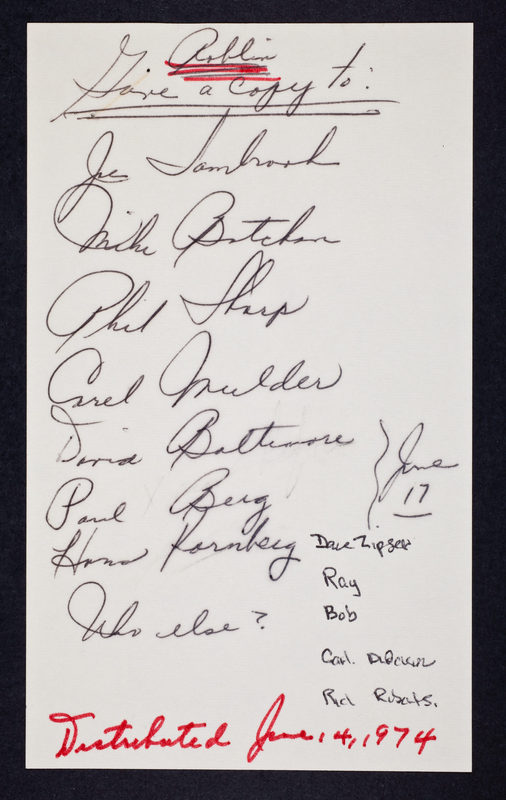 Roblin
Give a copy to:
Joe Sambrook
Mike Botchan
Phil Sharp
Carel Mulder
David Baltimore
Paul Berg
June
17
Hans Kornberg
Dave Zipser
Ray
Bob
Who else?
Carl
Rich Roberts.
Distributed June 14, 1974